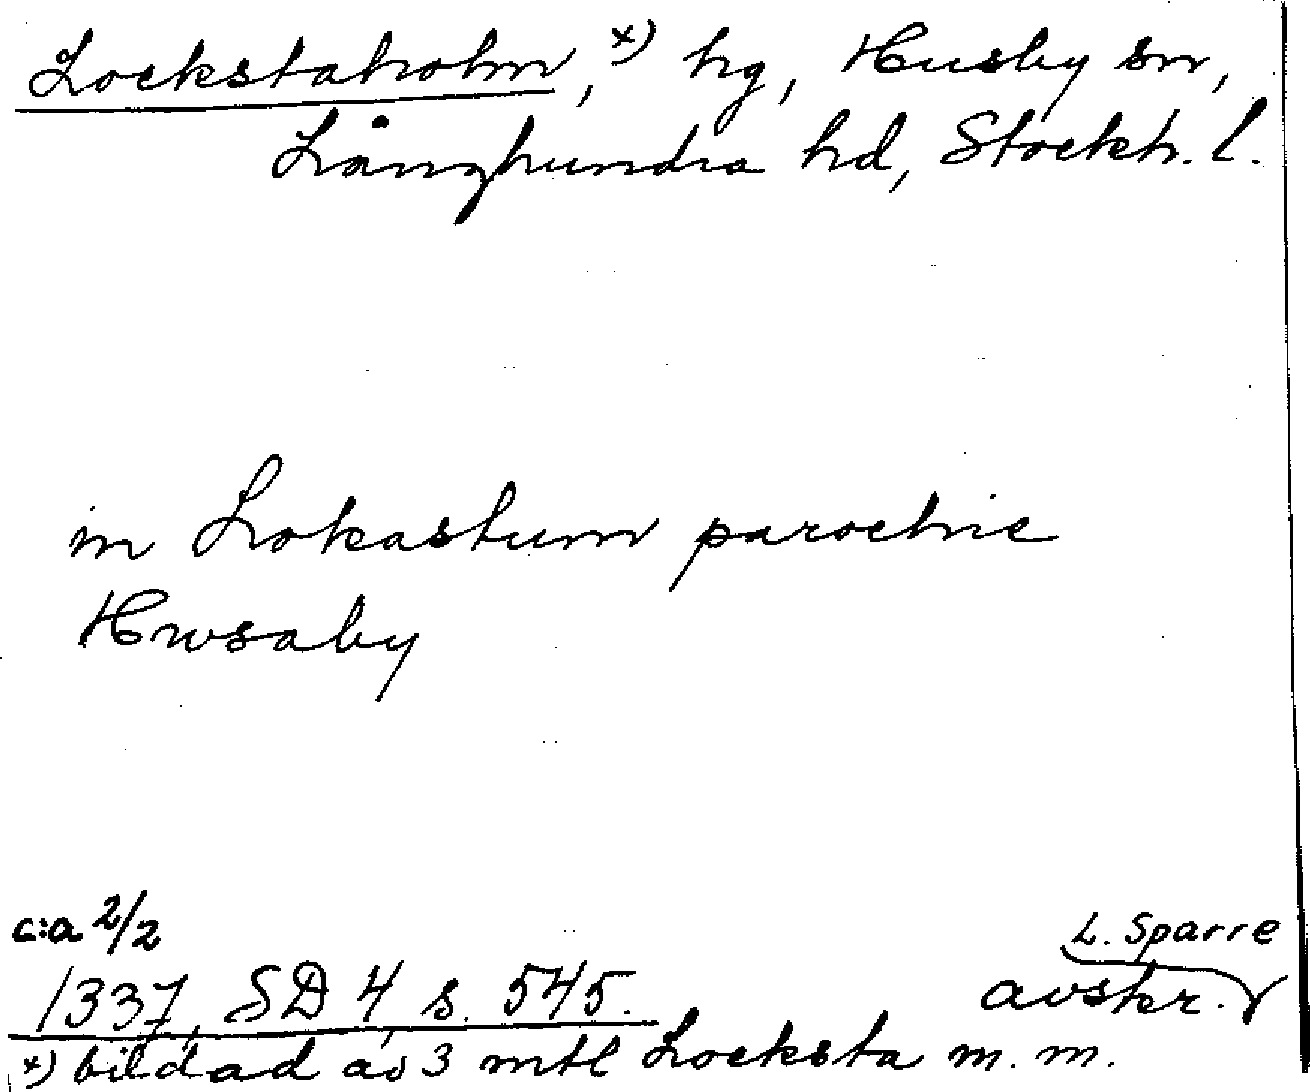 Lockstaholm, x) hg, Husby sn,
Långhundra hd, Stockh. l.
in Lokastum parochie
Hwsaby
c:a 2/2
L. Sparre
1337, SD 4, s. 545.
avskr.
x) bildad av 3 mtl Locksta m. m.